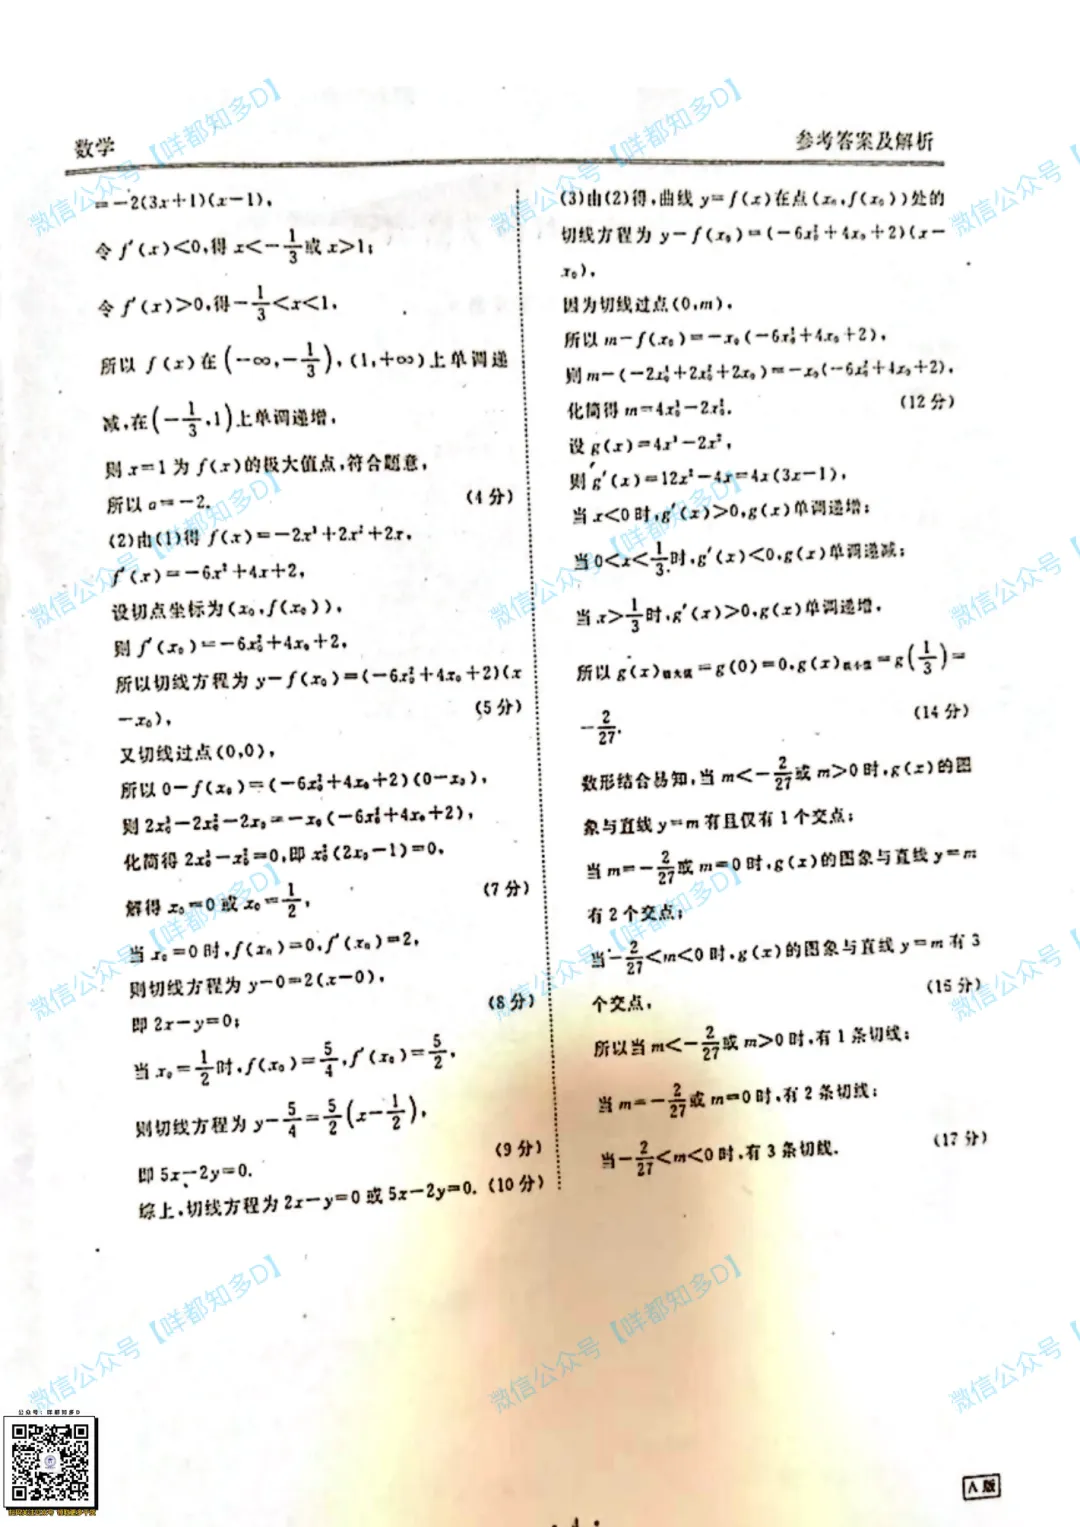 数学
参考答案及解析
=-2(3x+1)(x-1),
令 f′(x)<0,得 x<-1/3或 x>1;
令 f′(x)>0,得-1/3<x<1,
所以 f(x)在(-∞,-1/3),(1,+∞)上单调递
减,在(-1/3,1)上单调递增,
则 x=1 为 f(x)的极大值点,符合题意,
所以 a=-2. (4 分)
(2)由(1)得 f(x)=-2x³+2x²+2x,
f′(x)=-6x²+4x+2,
设切点坐标为(x₀,f(x₀)),
则 f′(x₀)=-6x₀²+4x₀+2,
所以切线方程为 y-f(x₀)=(-6x₀²+4x₀+2)(x
-x₀), (5 分)
又切线过点(0,0),
所以 0-f(x₀)=(-6x₀²+4x₀+2)(0-x₀),
则 2x₀³-2x₀²-2x₀=-x₀(-6x₀²+4x₀+2),
化简得 2x₀³-x₀²=0,即 x₀²(2x₀-1)=0,
解得 x₀=0 或 x₀=1/2, (7 分)
当 x₀=0 时,f(x₀)=0,f′(x₀)=2,
则切线方程为 y-0=2(x-0),
即 2x-y=0; (8 分)
当 x₀=1/2时,f(x₀)=5/4,f′(x₀)=5/2,
则切线方程为 y-5/4=5/2(x-1/2),
即 5x-2y=0. (9 分)
综上,切线方程为 2x-y=0 或 5x-2y=0. (10 分)
(3)由(2)得,曲线 y=f(x)在点(x₀,f(x₀))处的
切线方程为 y-f(x₀)=(-6x₀²+4x₀+2)(x-
x₀),
因为切线过点(0,m),
所以 m-f(x₀)=-x₀(-6x₀²+4x₀+2),
则 m-(-2x₀³+2x₀²+2x₀)=-x₀(-6x₀²+4x₀+2),
化简得 m=4x₀³-2x₀². (12 分)
设 g(x)=4x³-2x²,
则 g′(x)=12x²-4x=4x(3x-1),
当 x<0 时,g′(x)>0,g(x)单调递增;
当 0<x<1/3时,g′(x)<0,g(x)单调递减;
当 x>1/3时,g′(x)>0,g(x)单调递增,
所以 g(x)极大值=g(0)=0,g(x)极小值=g(1/3)=
-2/27. (14 分)
数形结合易知,当 m<-2/27或 m>0 时,g(x)的图
象与直线 y=m 有且仅有 1 个交点;
当 m=-2/27或 m=0 时,g(x)的图象与直线 y=m
有 2 个交点;
当-2/27<m<0 时,g(x)的图象与直线 y=m 有 3
个交点, (16 分)
所以当 m<-2/27或 m>0 时,有 1 条切线;
当 m=-2/27或 m=0 时,有 2 条切线;
当-2/27<m<0 时,有 3 条切线. (17 分)
微信公众号【咩都知多D】
微信公众号【咩都知多D】
微信公众号【
微信公众号【咩都知多D】
微信公众号【咩都知多D】
微信公众号【
微信公众号【咩都知多D】
微信公众号【咩都知多D】
微信公众号【
微信公众号【咩都知多D】
微信公众号【咩都知多D】
微信公众号【
公众号:咩都知多D
A 版
· 4 ·